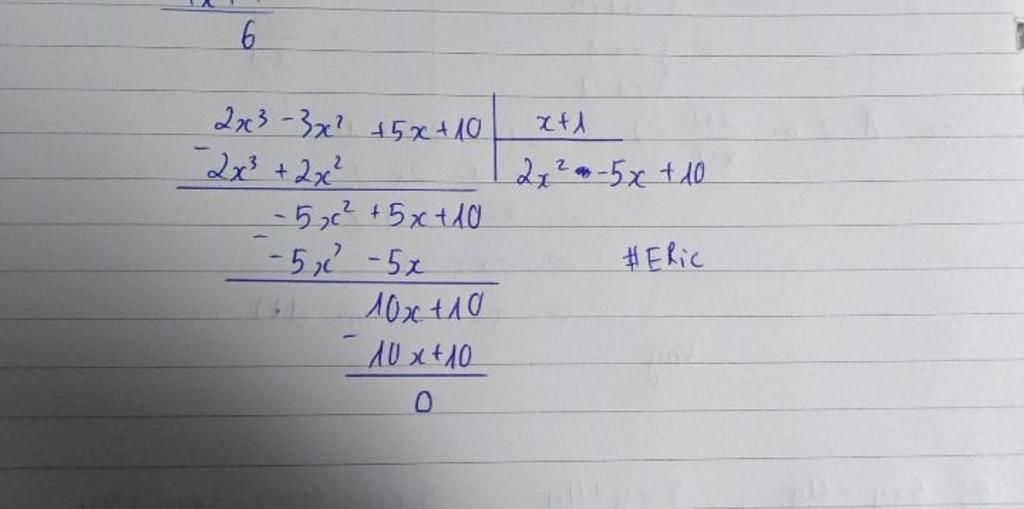 6
2x³ - 3x² + 5x + 10 | x + 1
- 2x³ + 2x² | 2x² - 5x + 10
- 5x² + 5x + 10
- - 5x² - 5x
#ERic
10x + 10
- 10x + 10
0